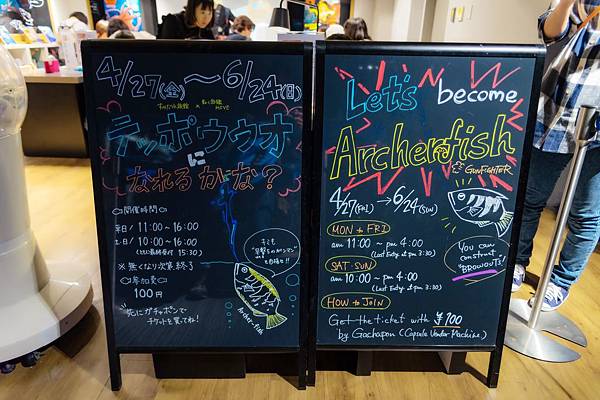 4/27(金)〜6/24(日)
テッポウウオ
に
なれるかな?
開催時間
平日/ 11:00〜16:00
土日/ 10:00〜16:00
(さいしゅう受付 15:30)
※無くなり次第終了
参加費
100円
先にガチャポンで
チケットを買ってね!
Archer-fish
Let's become
Archerfish
& GUNFIGHTER
4/27(FRI) → 6/24(SUN)
MON to FRI
am 11:00 〜 pm 4:00
(Last Entry at pm 3:30)
SAT·SUN
am 10:00 〜 pm 4:00
(Last Entry at pm 3:30)
HOW to JOIN
Get the ticket with ¥100
by Gachapon (Capsule Vender Machine)
You can
construct
"BROWNUTS"!